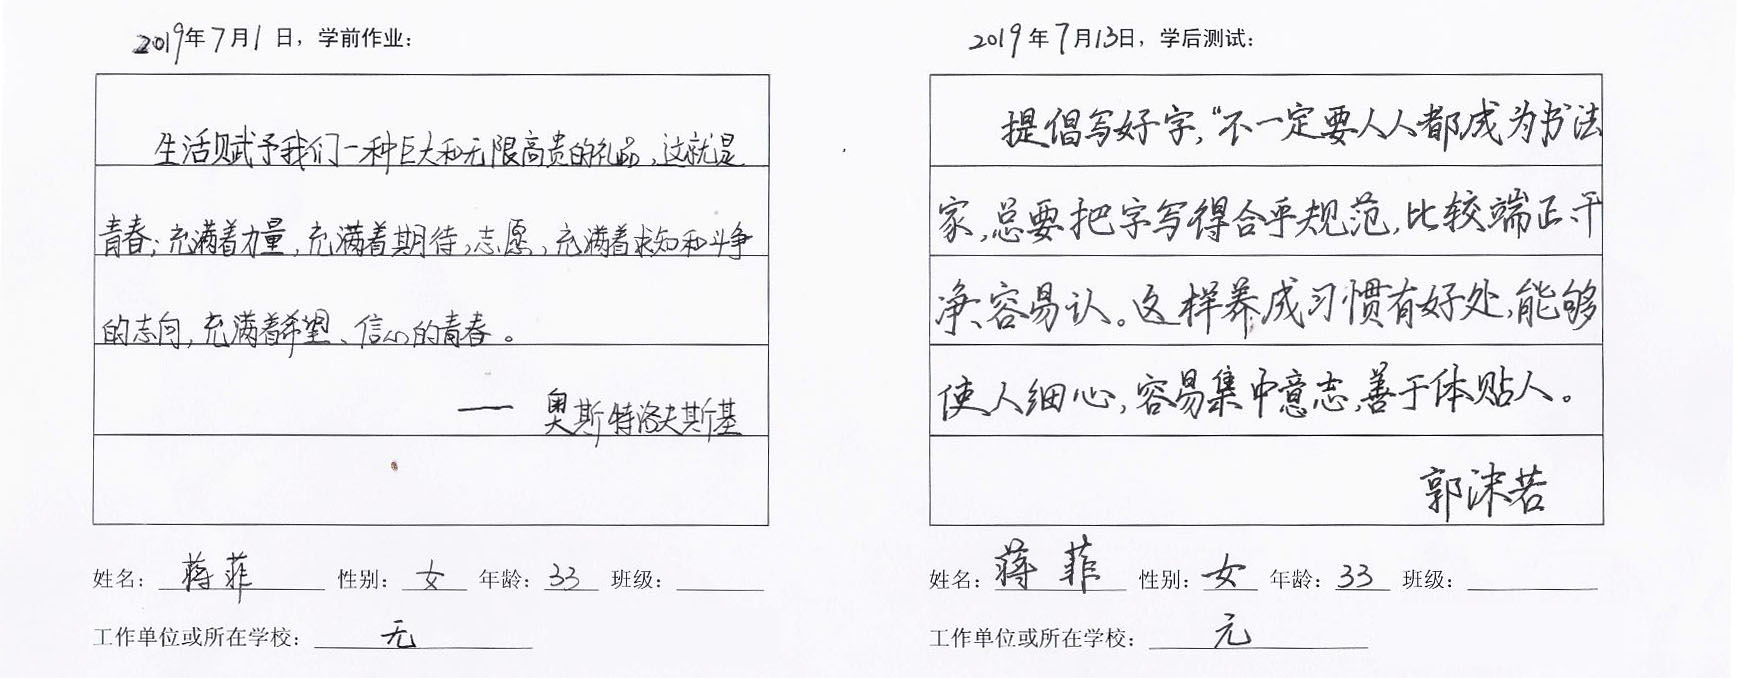 2019年7月1日，学前作业：
生活赋予我们一种巨大和无限高贵的礼品，这就是
青春：充满着力量，充满着期待，志愿，充满着求知和斗争
的志向，充满着希望、信心的青春。
—— 奥斯特洛夫斯基
姓名：蒋菲 性别：女 年龄：33 班级：
工作单位或所在学校：无
2019年7月13日，学后测试：
提倡写好字，“不一定要人人都成为书法
家，总要把字写得合乎规范，比较端正、干
净、容易认。这样养成习惯有好处，能够
使人细心，容易集中意志，善于体贴人。
郭沫若
姓名：蒋菲 性别：女 年龄：33 班级：
工作单位或所在学校：无